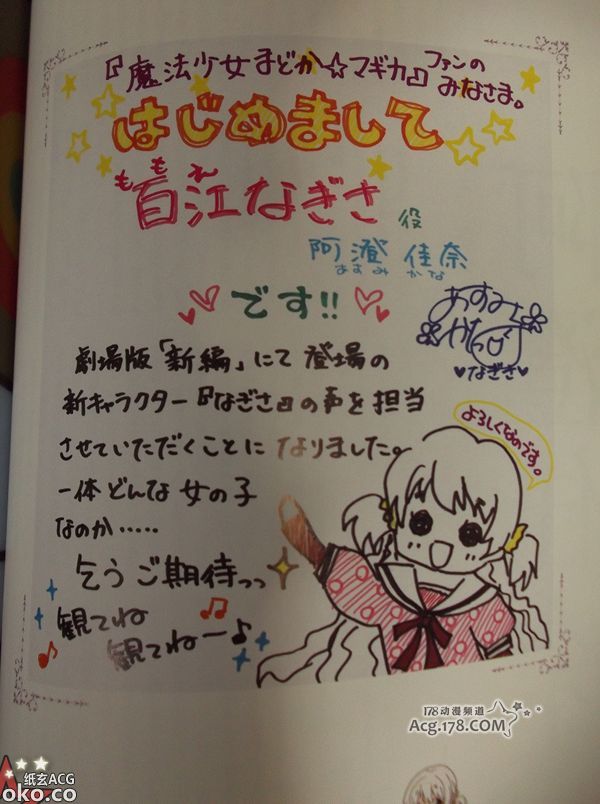 『魔法少女まどか☆マギカ』ファンの
みなさま。
はじめまして
ももえ
百江なぎさ 役
阿澄 佳奈
あすみ かな
です!!
あすみ
かな
♥なぎさ♥
劇場版「新編」にて登場の
新キャラクター『なぎさ』の声を担当
させていただくことになりました。
一体どんな女の子
なのか……
乞うご期待っっ
観てね
観てねー♪
よろしくなのです。
178动漫频道
Acg.178.COM
纸玄ACG
oko.co